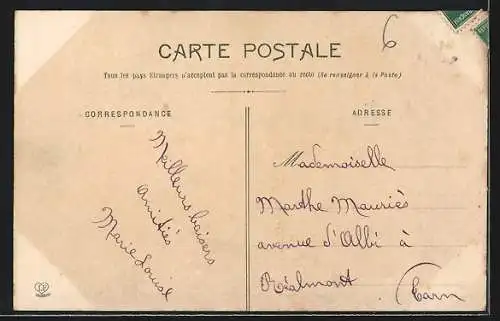 6
CARTE POSTALE
Tous les pays Etrangers n'acceptent pas la correspondance au recto (Se renseigner à la Poste)
CORRESPONDANCE
Meilleurs baisers
amitiés
Marie Louise
ADRESSE
Mademoiselle
Marthe Mauriès
avenue d'Albi à
Réalmont (Tarn